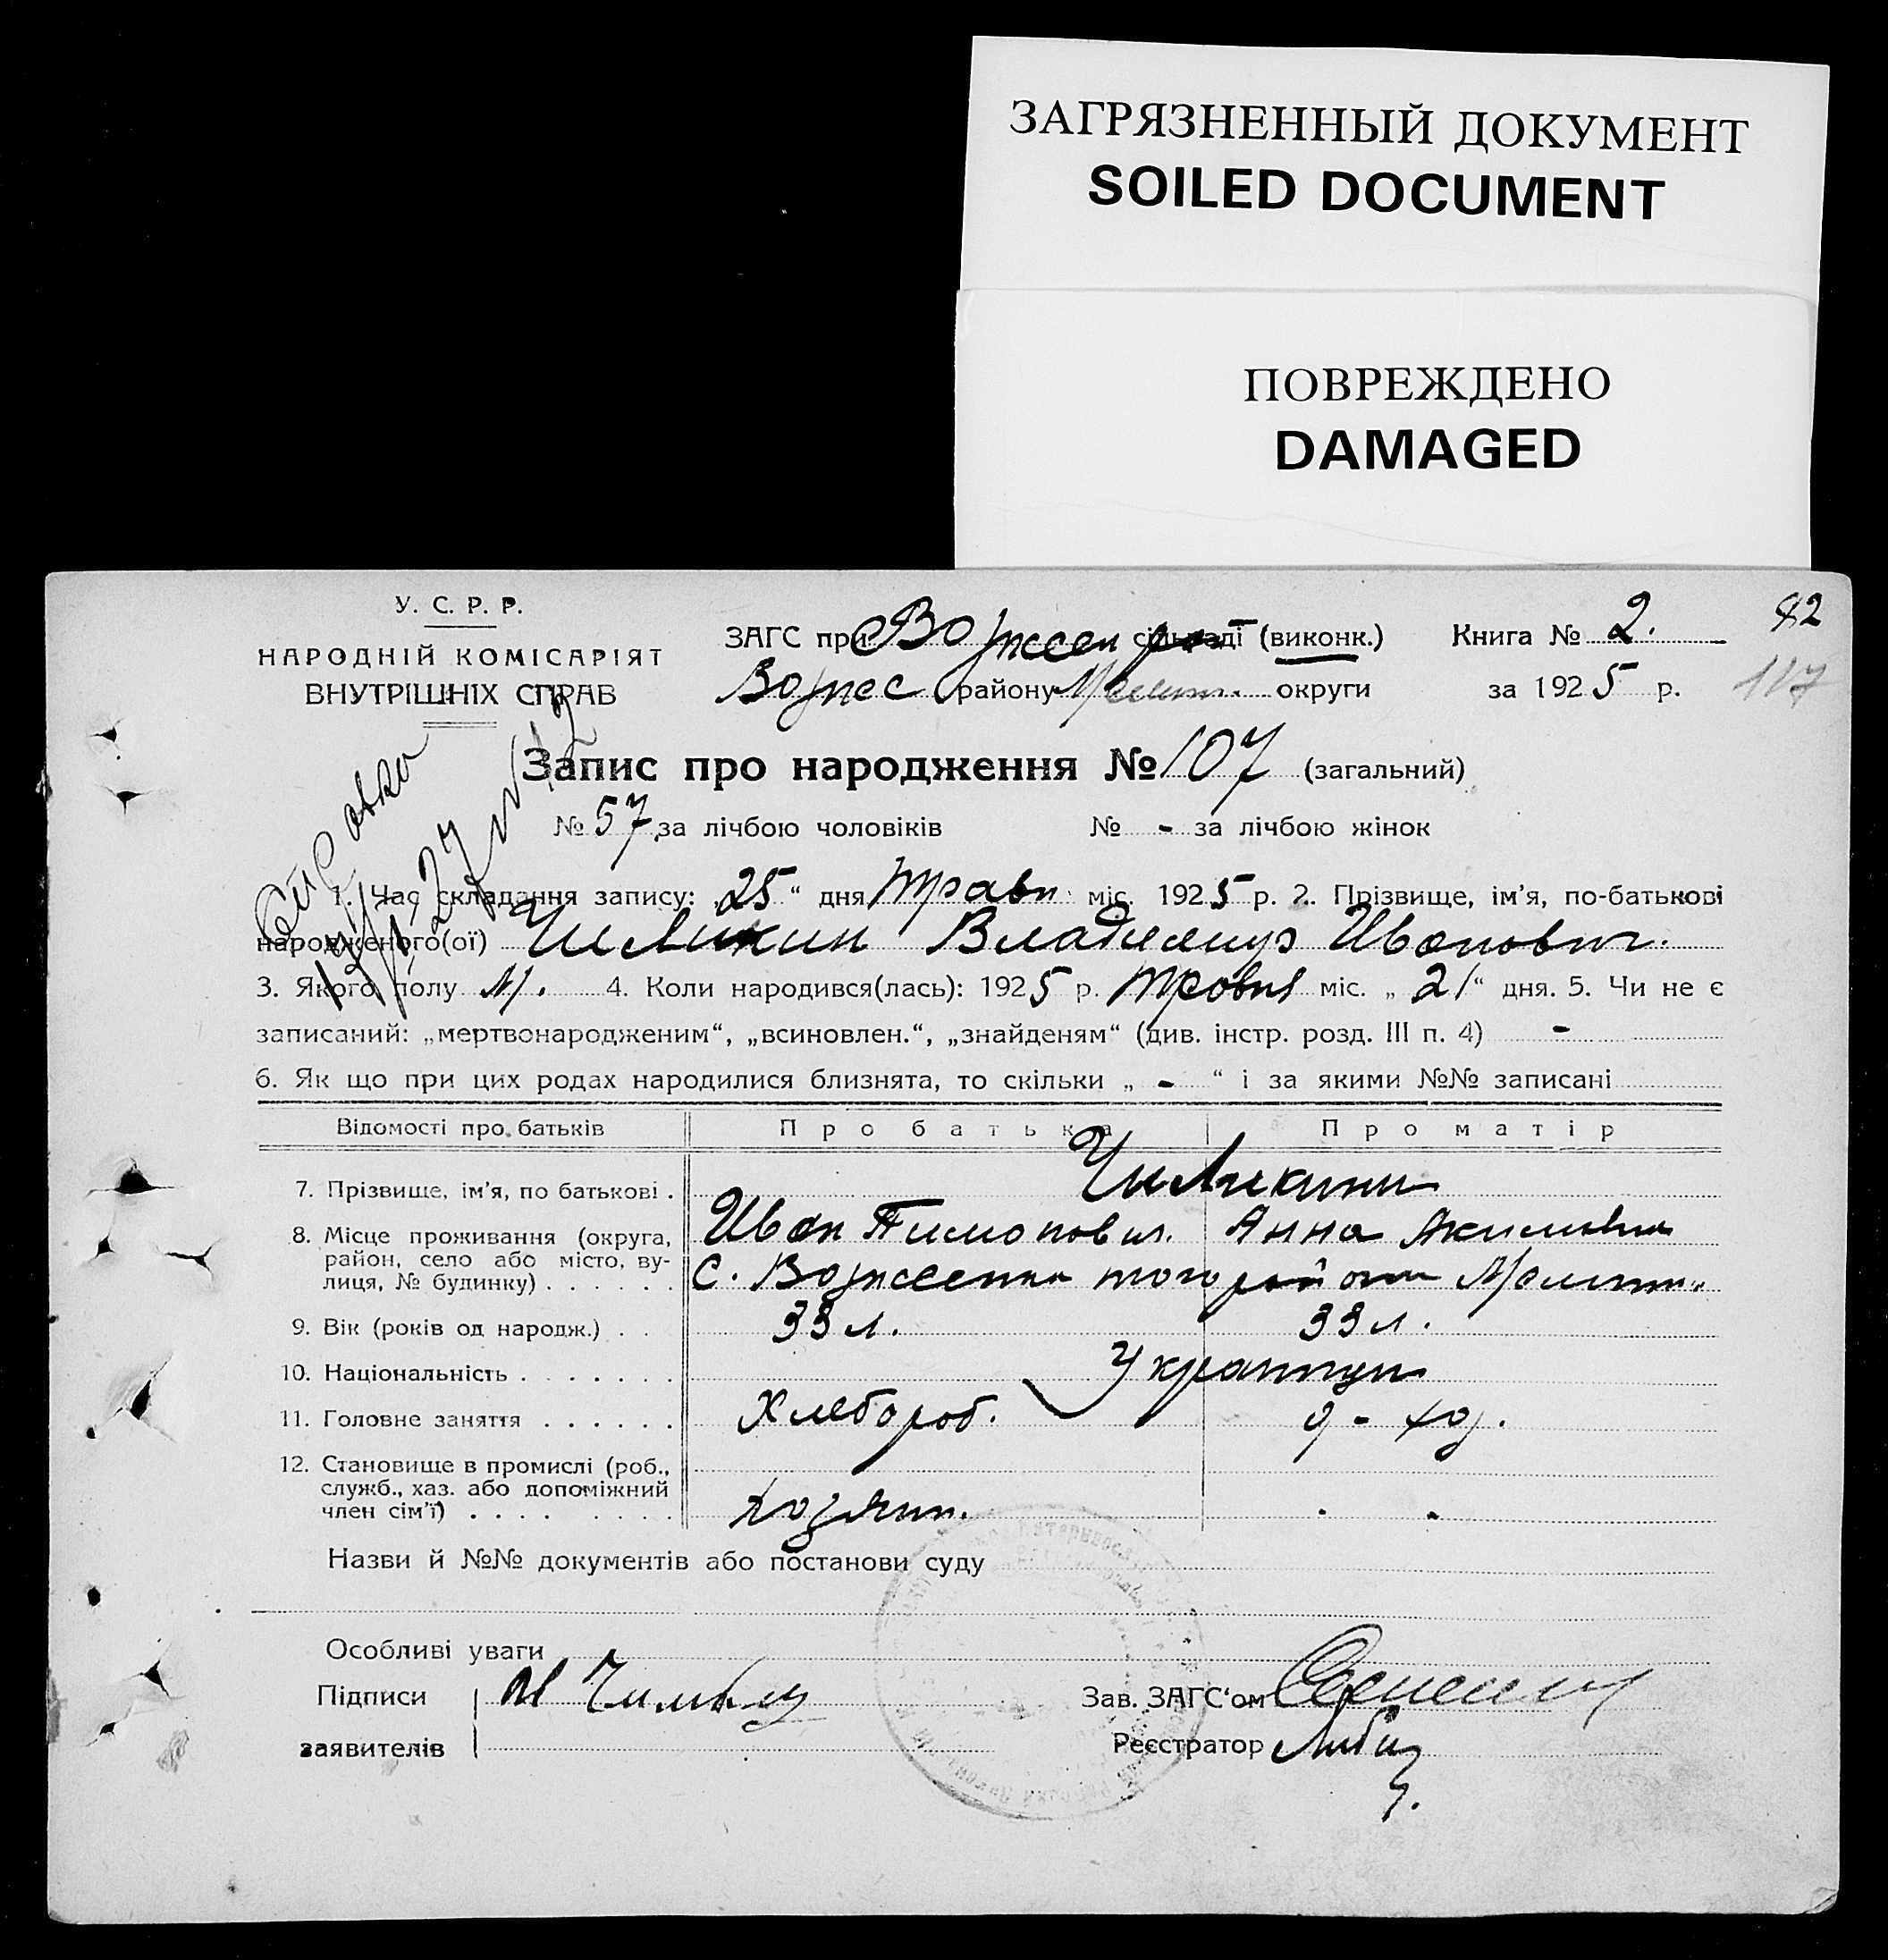 ЗАГРЯЗНЕННЫЙ ДОКУМЕНТ
SOILED DOCUMENT
ПОВРЕЖДЕНО
DAMAGED
82
117
У. С. Р. Р.
НАРОДНІЙ КОМІСАРІЯТ
ВНУТРІШНІХ СПРАВ
ЗАГС при сільраді (виконк.) Книга № 2.
Вознес району Мелит. округи за 1925 р.
Запис про народження № 107 (загальний)
№ 57 за лічбою чоловіків № - за лічбою жінок
1. Час складання запису: „25“ дня Травн міс. 1925 р. 2. Прізвище, ім'я, по-батькові
народженого(ої) Чиликин Владимир Иванович.
3. Якого полу М. 4. Коли народився(лась): 1925 р. Травня міс. „21“ дня. 5. Чи не є
записаний: „мертвонародженим“, „всиновлен.“, „знайденям“ (див. інстр. розд. III п. 4) -
6. Як що при цих родах народилися близнята, то скільки „ - “ і за якими №№ записані
Відомості про батьків Про батька Про матір
7. Прізвище, ім'я, по батькові . Чиликини
8. Місце проживання (округа, Иван Анна Акимовна
район, село або місто, ву-
лиця, № будинку) . . . . . . с. Вознесенка того району Мелит.
9. Вік (років од народж.) . . 33 л. 33 л.
10. Національність . . . . . . . Украинци
11. Головне заняття . . . . . . Хлебороб. д - хоз.
12. Становище в промислі (роб.,
служб., хаз. або допоміжний
член сім'ї) . . . . . . . . хозяин.
Назви й №№ документів або постанови суду
Особливі уваги
Підписи Зав. ЗАГС'ом
заявителів Реєстратор